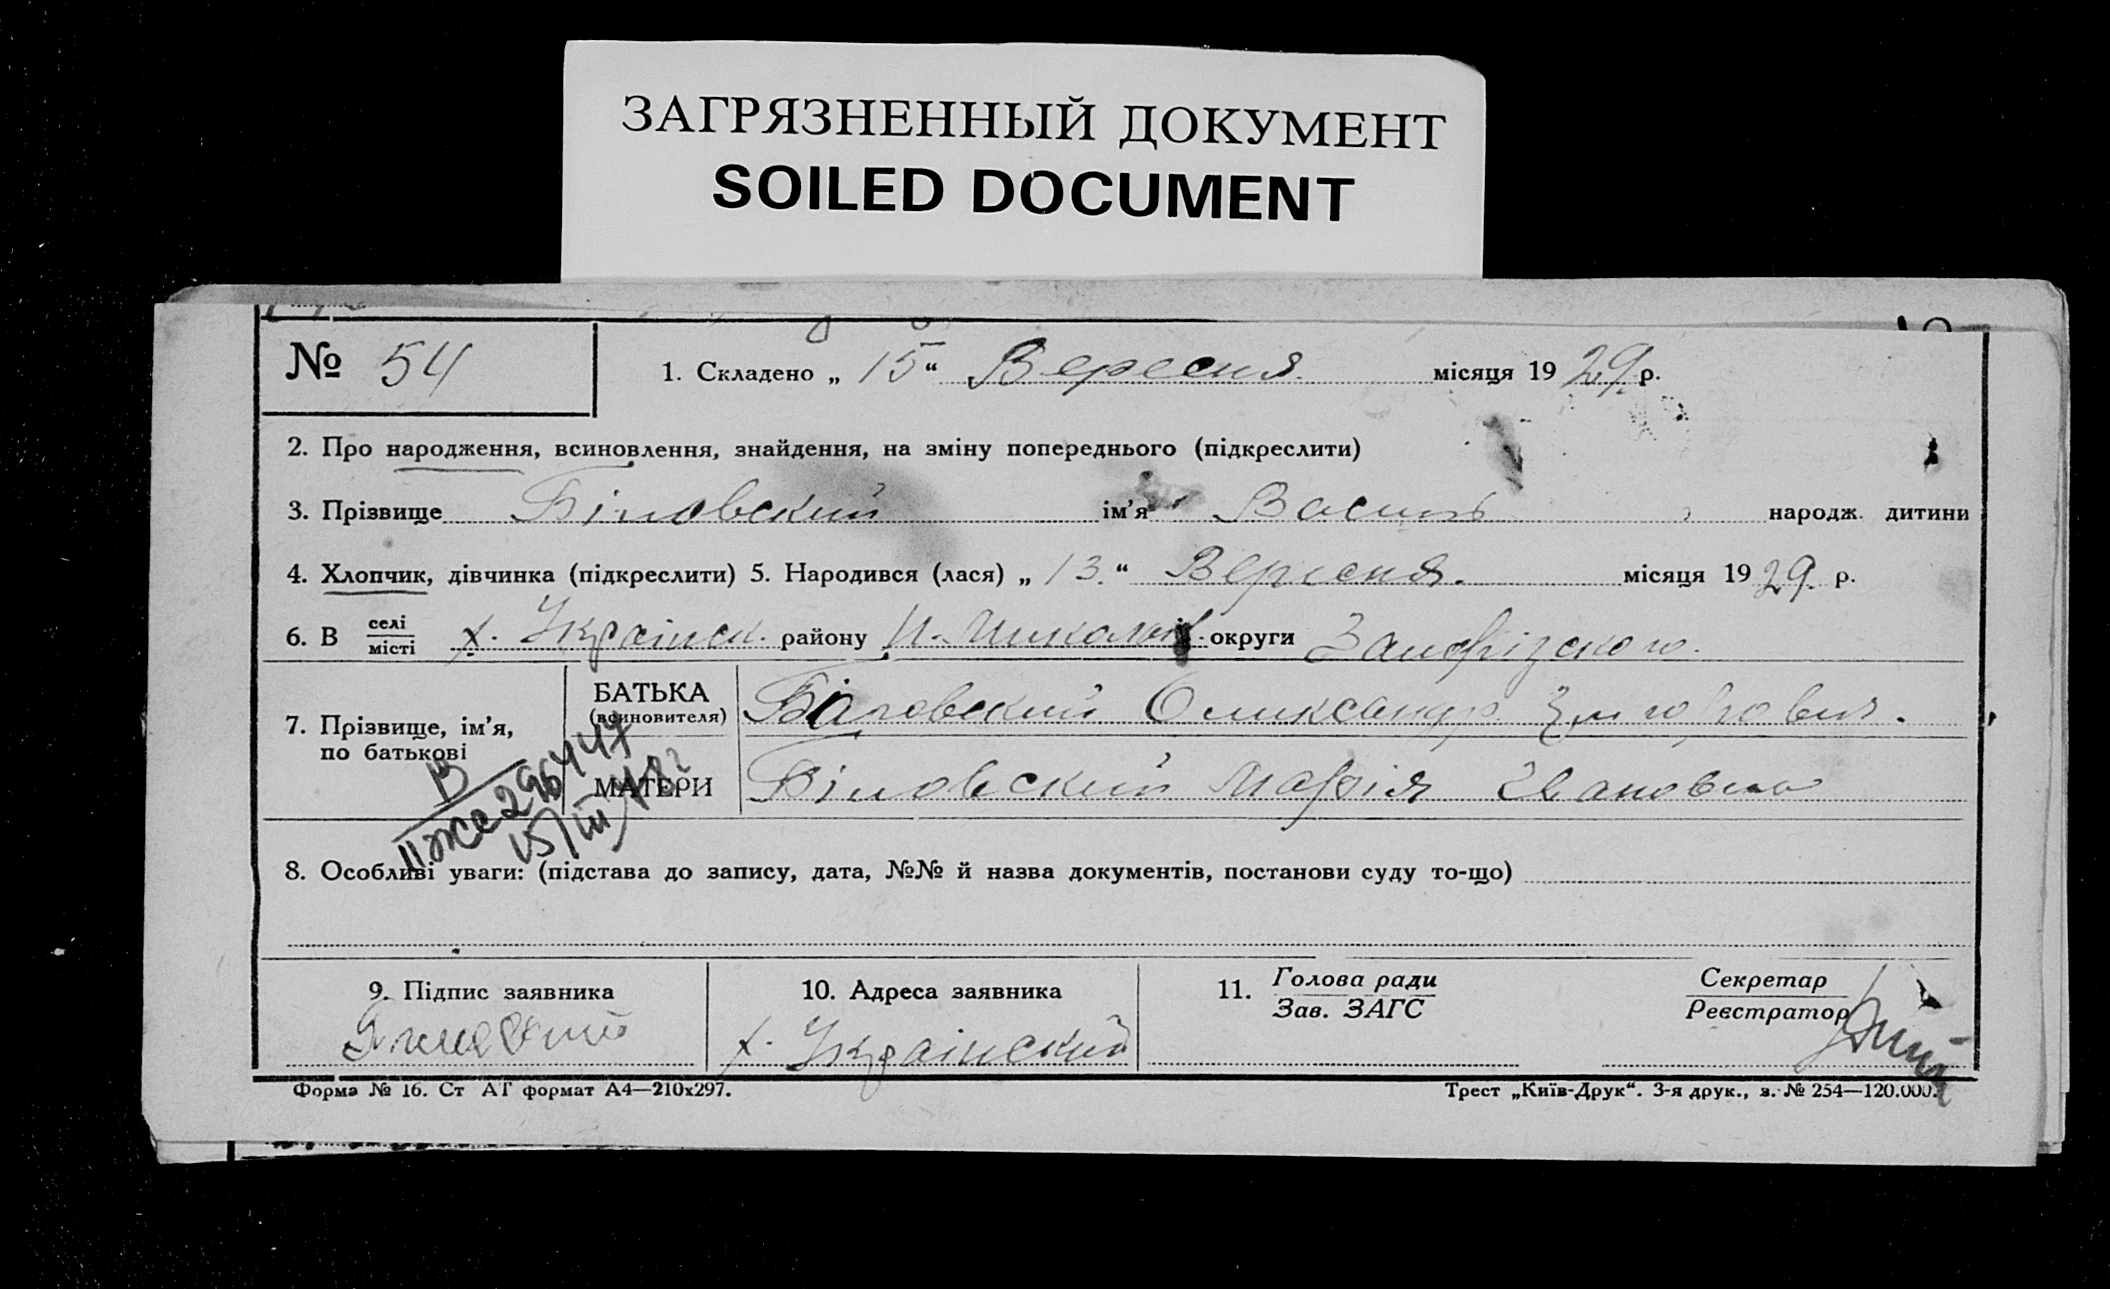 ЗАГРЯЗНЕННЫЙ ДОКУМЕНТ
SOILED DOCUMENT
№ 54
1. Складено „ 15 “ Вересня місяця 19 29 р.
2. Про народження, всиновлення, знайдення, на зміну попереднього (підкреслити)
3. Прізвище Біловский ім'я Василь народж. дитини
4. Хлопчик, дівчинка (підкреслити) 5. Народився (лася) „ 13. “ Вересня. місяця 19 29. р.
6. В селі місті х. Украінск. району округи Запорізского.
7. Прізвище, ім'я, по батькові
БАТЬКА (всиновителя) Біловский Олександр
МАТЕРИ Біловский Марія Івановна
В
II жс 296447
15/III
8. Особливі уваги: (підстава до запису, дата, №№ й назва документів, постанови суду то-що)
9. Підпис заявника
10. Адреса заявника
х. Украінский
11. Голова ради
Зав. ЗАГС
Секретар
Реєстратор
Форма № 16. Ст АТ формат А4—210х297.
Трест „Київ-Друк“. 3-я друк., з. № 254—120.000.